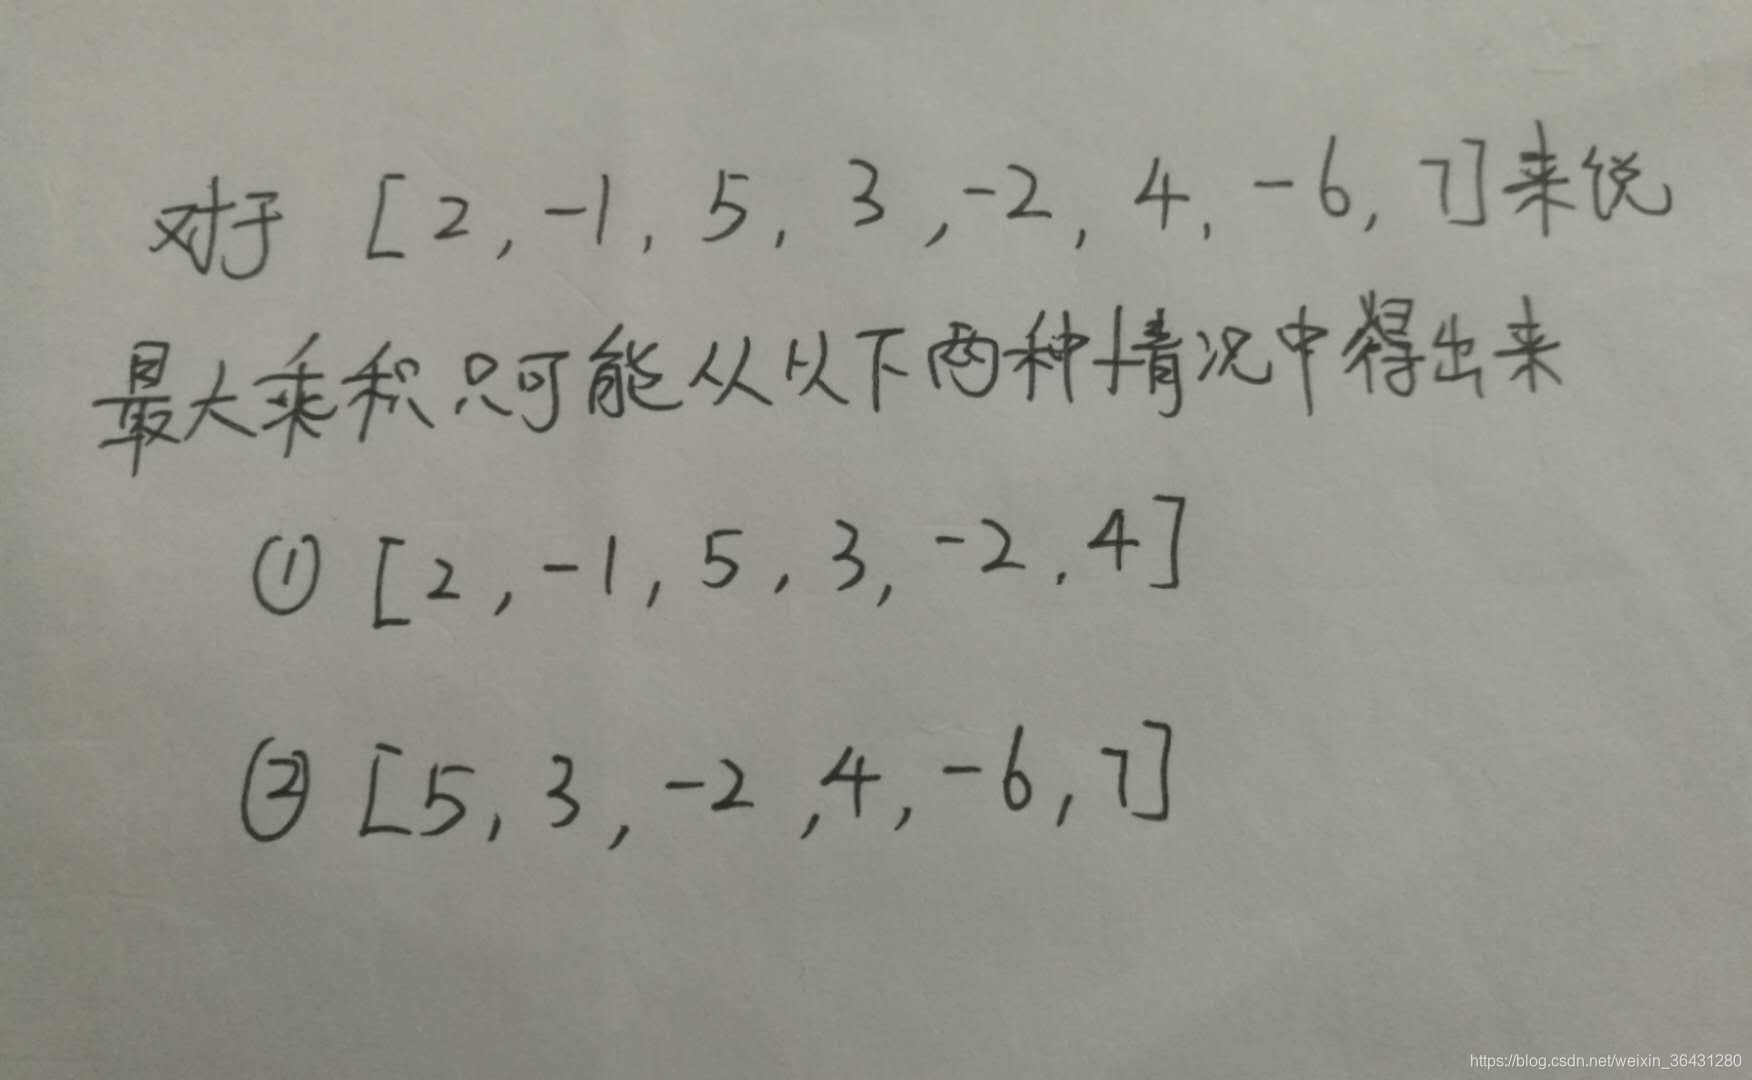 对于 [2, -1, 5, 3, -2, 4, -6, 7]来说
最大乘积只可能从以下两种情况中得出来
① [2, -1, 5, 3, -2, 4]
② [5, 3, -2, 4, -6, 7]
https://blog.csdn.net/weixin_36431280